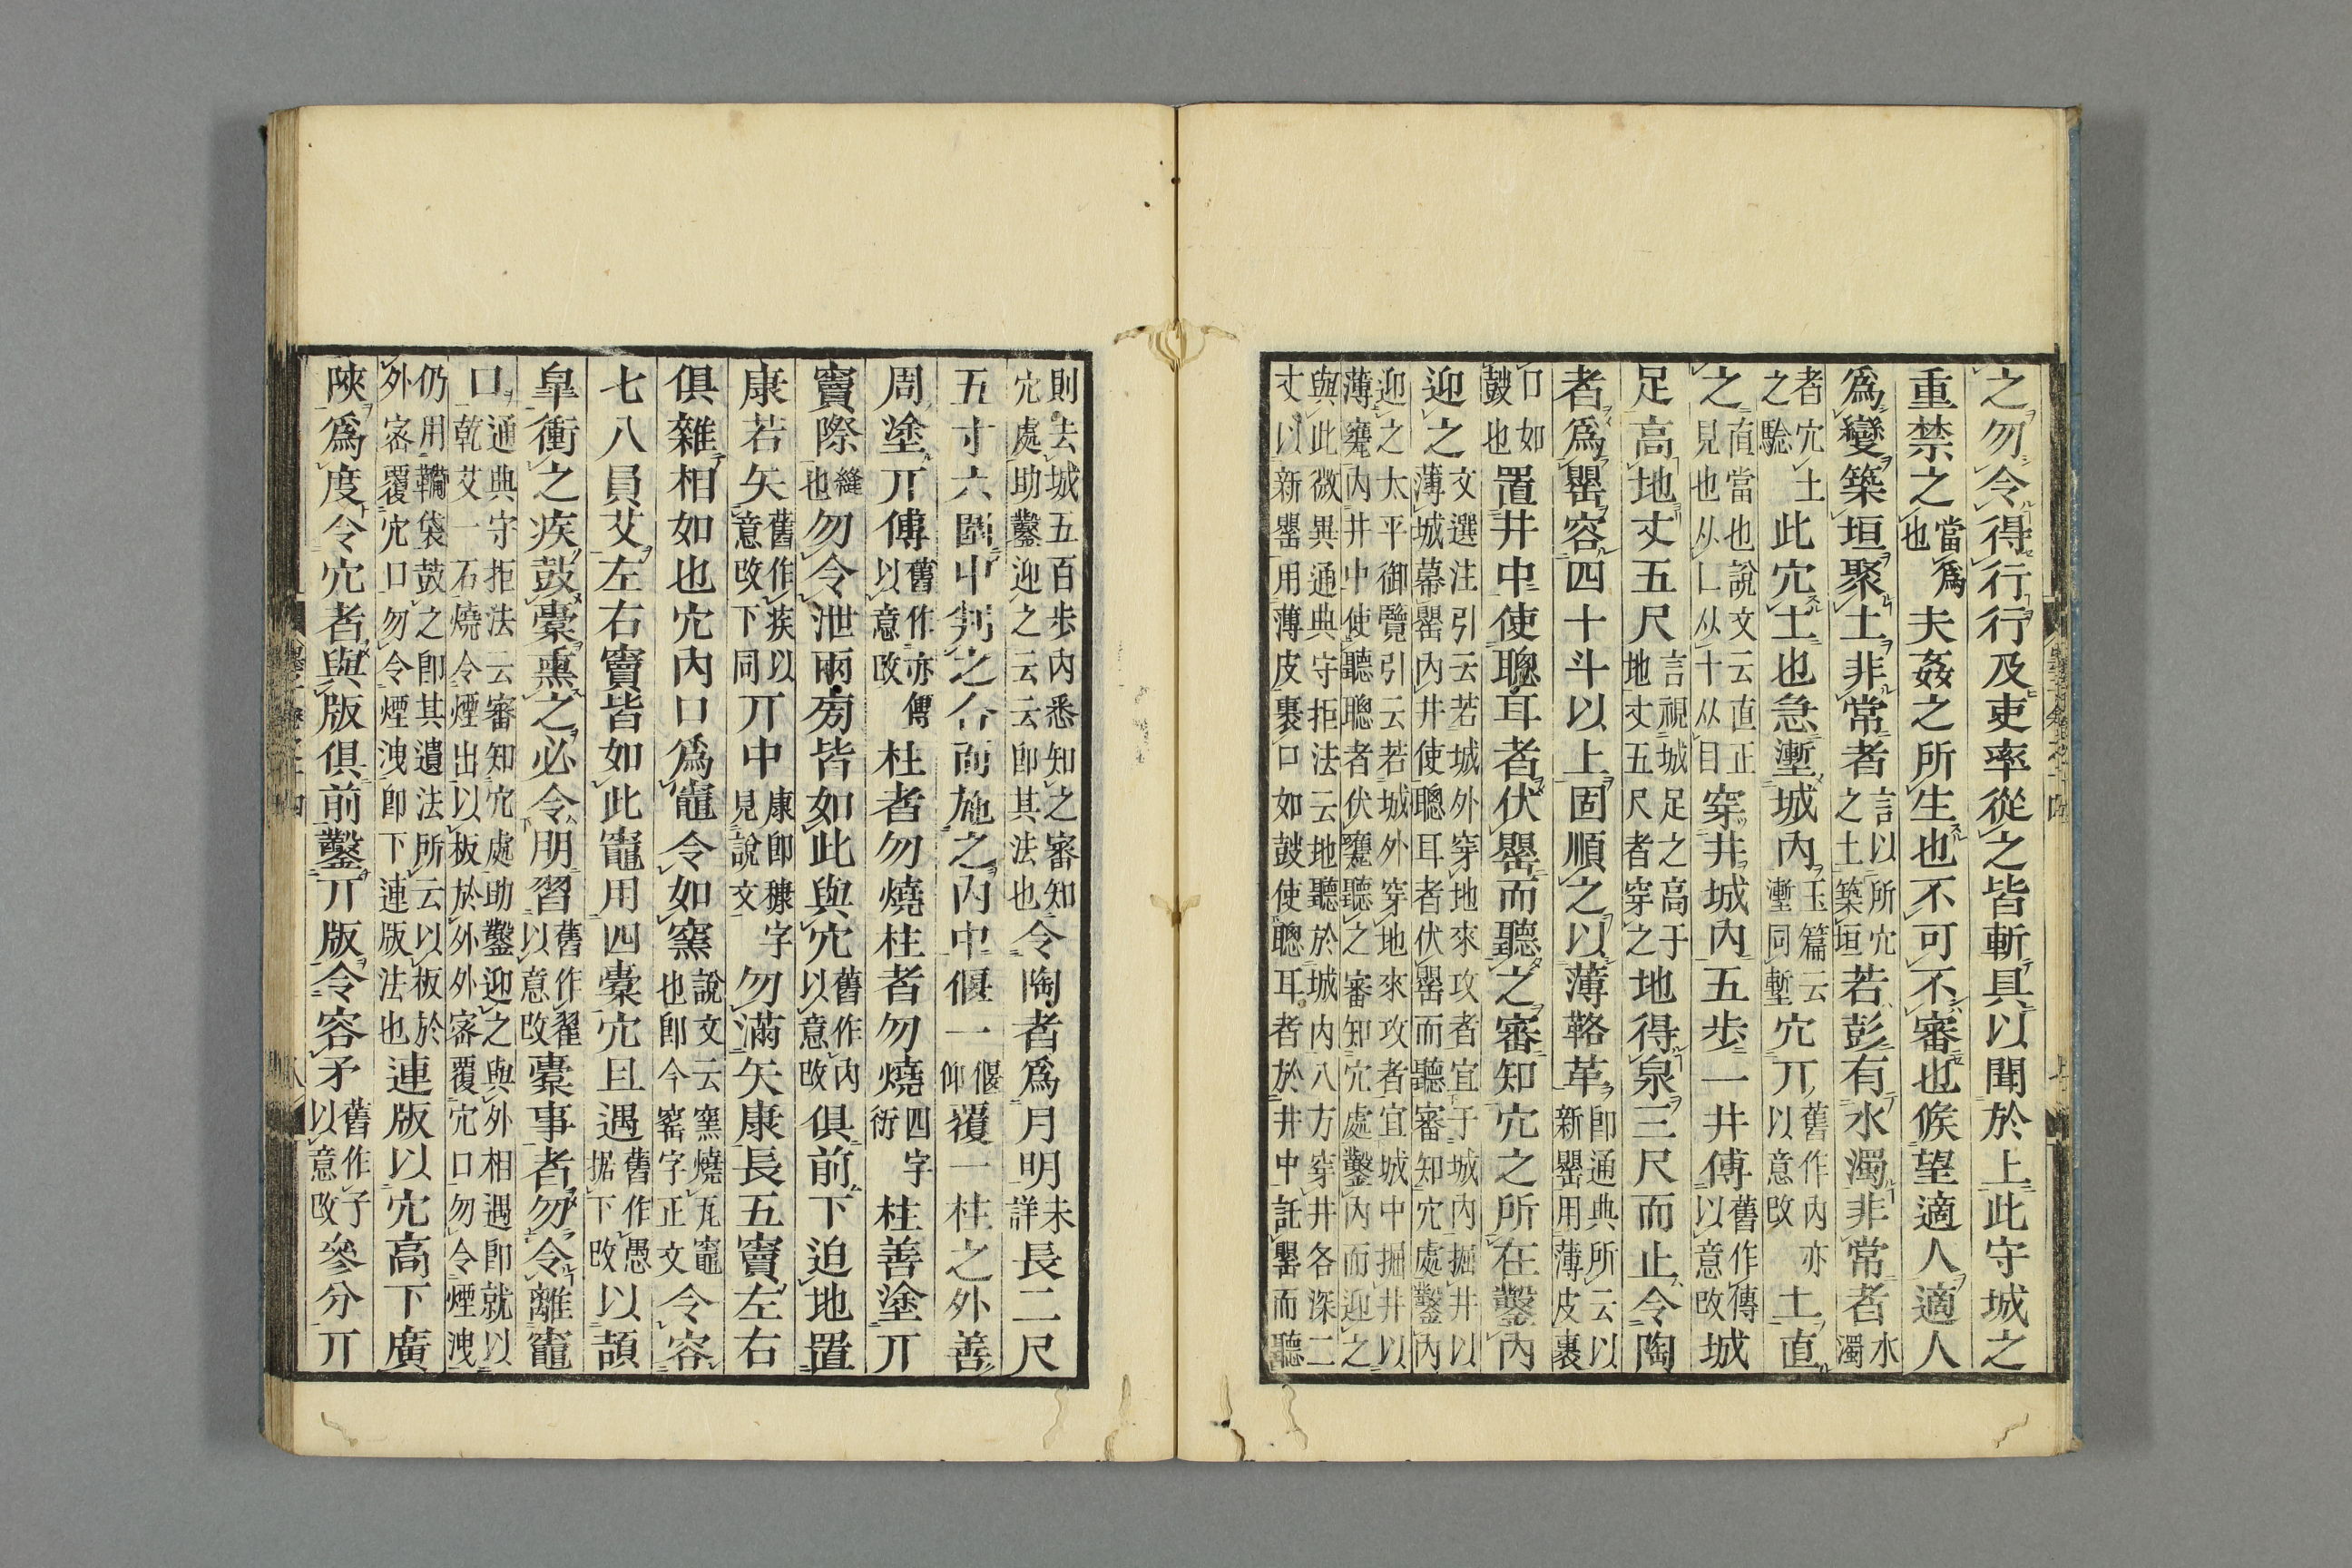 之勿令得行行及吏率從之皆斬具以聞於上此守城之
重禁之當爲也夫姦之所生也不可不審也候望適人適人
爲變築垣聚土非常者言以所穴之土築垣若彭有水濁非常者水濁
者穴土之驗此穴土也急壍城內玉篇云壍同塹穴丌舊作內亦以意改土直
之直當也說文云直正見也从乚从十从目穿井城內五步一井傅舊作傳以意改城
足高地丈五尺言視城足之高于地丈五尺者穿之地得泉三尺而止令陶
者爲罌容四十斗以上固順之以薄䩭革卽通典所云以新罌用薄皮裹
口如鼓也置井中使聰耳者伏罌而聽之審知穴之所在鑿內
迎之文選注引云若城外穿地來攻者宜于城內掘井以薄城幕罌內井使聰耳者伏罌而聽審知穴處鑿內
迎之太平御覽引云若城外穿地來攻者宜城中掘井以薄甕內井中使聽聰者伏甕聽之審知穴處鑿內而迎之
與此微異通典守拒法云地聽於城內八方穿井各深二丈以新罌用薄皮裹口如鼓使聰耳者於井中託罌而聽
則去城五百步內悉知之審知穴處助鑿迎之云云卽其法也令陶者爲月明未詳長二尺
五寸六圍中判之合而施之內中偃一偃仰覆一柱之外善
周塗丌傅舊作亦傳以意改柱者勿燒柱者勿燒四字衍柱善塗丌
竇際縫也勿令泄兩旁皆如此與穴舊作內以意改俱前下迫地置
康若矢舊作疾以意改下同丌中康卽穅字見說文勿滿矢康長五竇左右
俱雜相如也穴內口爲竈令如窯說文云窯燒瓦竈也卽今窰字正文令容
七八員艾左右竇皆如此竈用四櫜穴且遇舊作愚据下改以頡
皐衝之疾鼓櫜熏之必令明習舊作翟以意改櫜事者勿令離竈
口通典守拒法云審知穴處助鑿迎之與外相遇卽就以乾艾一石燒令煙出以板於外外宻覆穴口勿令煙洩
仍用鞴袋鼓之卽其遺法所云以板於外宻覆穴口勿令煙洩卽下連版法也連版以穴高下廣
陝爲度令穴者與版俱前鑿丌版令容矛舊作子以意改參分丌